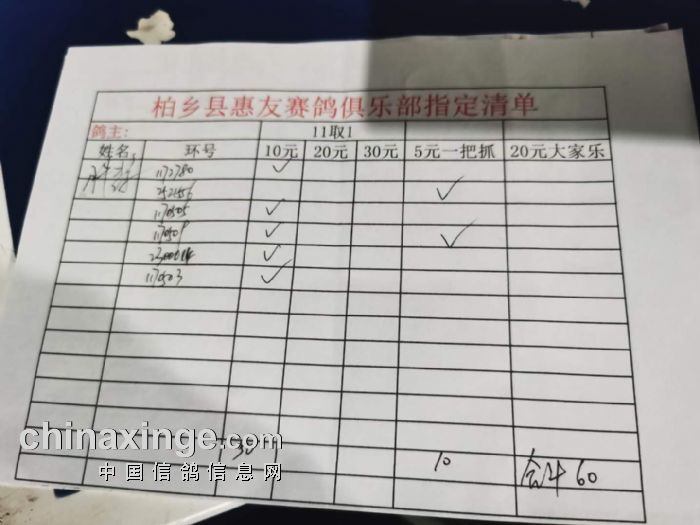 柏乡县惠友赛鸽俱乐部指定清单
鸽主:
11取1
姓名 环号 10元 20元 30元 5元一把抓 20元大家乐
1172780
252156
1170505
1170503
10 合计 60
chinaxinge.com
中国信鸽信息网